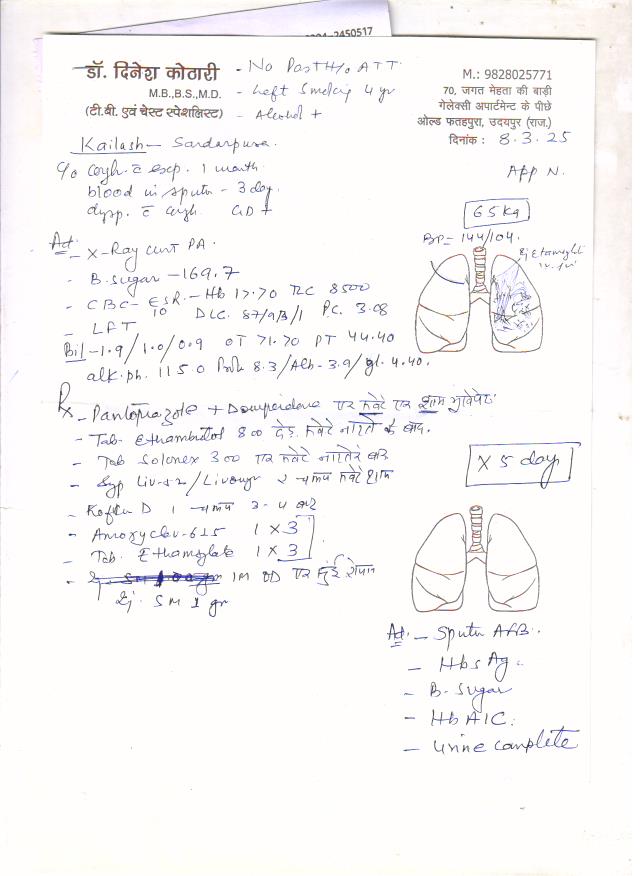 2450517
डॉ. दिनेश कोठारी
M.B.,B.S.,M.D.
(टी.बी. एवं चेस्ट स्पेशलिस्ट)
- No Past H/o ATT
- Left Smoking 4 yr
- Alcohol +
M.: 9828025771
70, जगत मेहता की बाड़ी
गेलेक्सी अपार्टमेन्ट के पीछे
ओल्ड फतहपुरा, उदयपुर (राज.)
दिनांक : 8.3.25
Kailash - Sardarpura
C/o cough c exp. 1 month
blood in sputm - 3 day.
dysp. c cough GD +
App N.
65 kg
BP = 144/104.
Inj Ethamsylate
Ad - X-Ray chest PA.
- B. Sugar - 169.7
- CBC - ESR - Hb 17.70 TLC 8500
10 DLC. 87/9/3/1 PC. 3.08
- LFT
Bil - 1.9/1.0/0.9 OT 71.70 PT 44.40
alk. ph. 115.0 Prot 8.3/Alb - 3.9/gl. 4.40.
Rx - Pantoprazole + Domperidone एक सवेरे एक शाम भूखेपेट
- Tab. Ethambutol 800 सवेरे नास्ते के बाद.
- Tab Solonex 300 एक सवेरे नास्ते बाद
- Syp Liv-52 / 2 चम्मच सवेरे शाम
- Koflin D 1 चम्मच 3-4 बार
- Amoxyclav-625 1 X 3
- Tab. Ethamsylate 1 X 3
X 5 day
- IM OD एक सुंई रोजाना
Inj. SM 1 gr
Ad. - Sputm AFB.
- HbsAg.
- B-Sugar
- HbA1C.
- Urine Complete